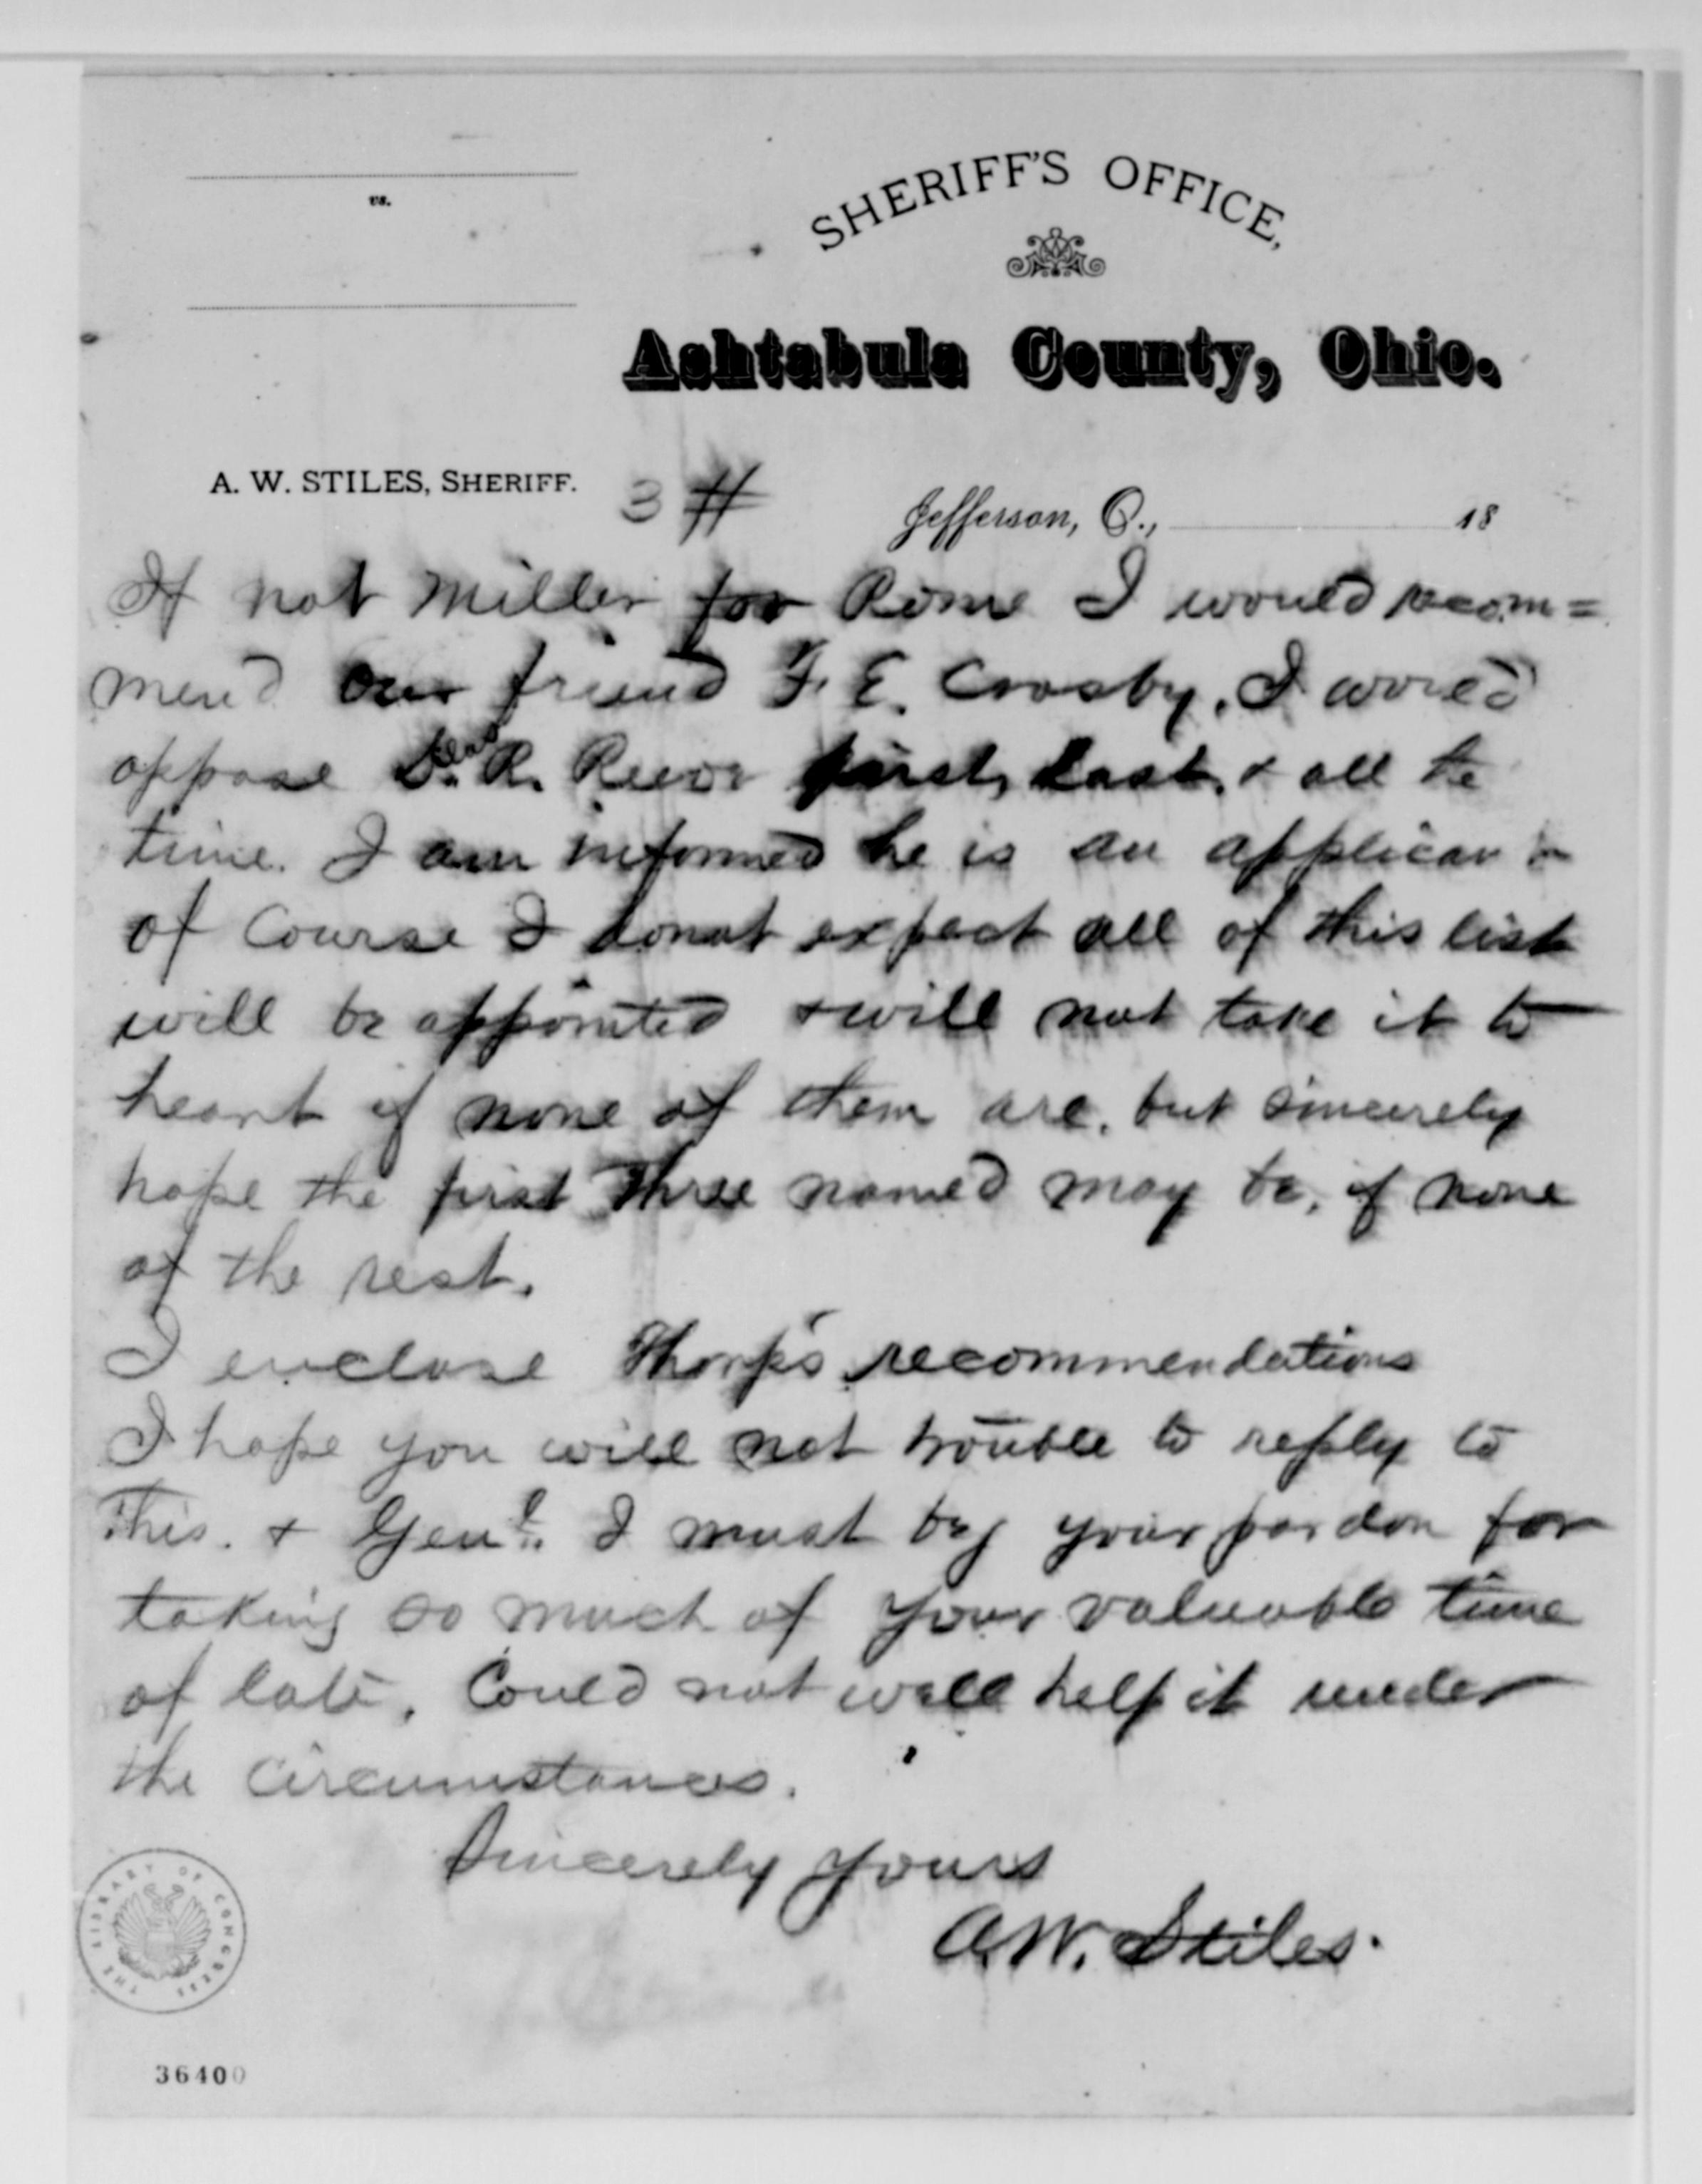 vs.
SHERIFF'S OFFICE,
Ashtabula County, Ohio.
A. W. STILES, SHERIFF.
3 #
Jefferson, O., 18
If not Miller for Rome I would recom=
mend our friend F. E. Crosby. I would
oppose R. Reeve first, last, & all the
time. I am informed he is an applican
of course I donot expect all of this list
will be appointed & will not take it to
heart if none of them are. but sincerely
hope the first three named may be, if none
of the rest.
I enclose Thorp's recommendations
I hope you will not trouble to reply to
this. & Genl. I must beg your pardon for
taking so much of your valuable time
of late. Could not well help it under
the circumstances.
Sincerely yours
A.W. Stiles.
THE LIBRARY OF CONGRESS
36400